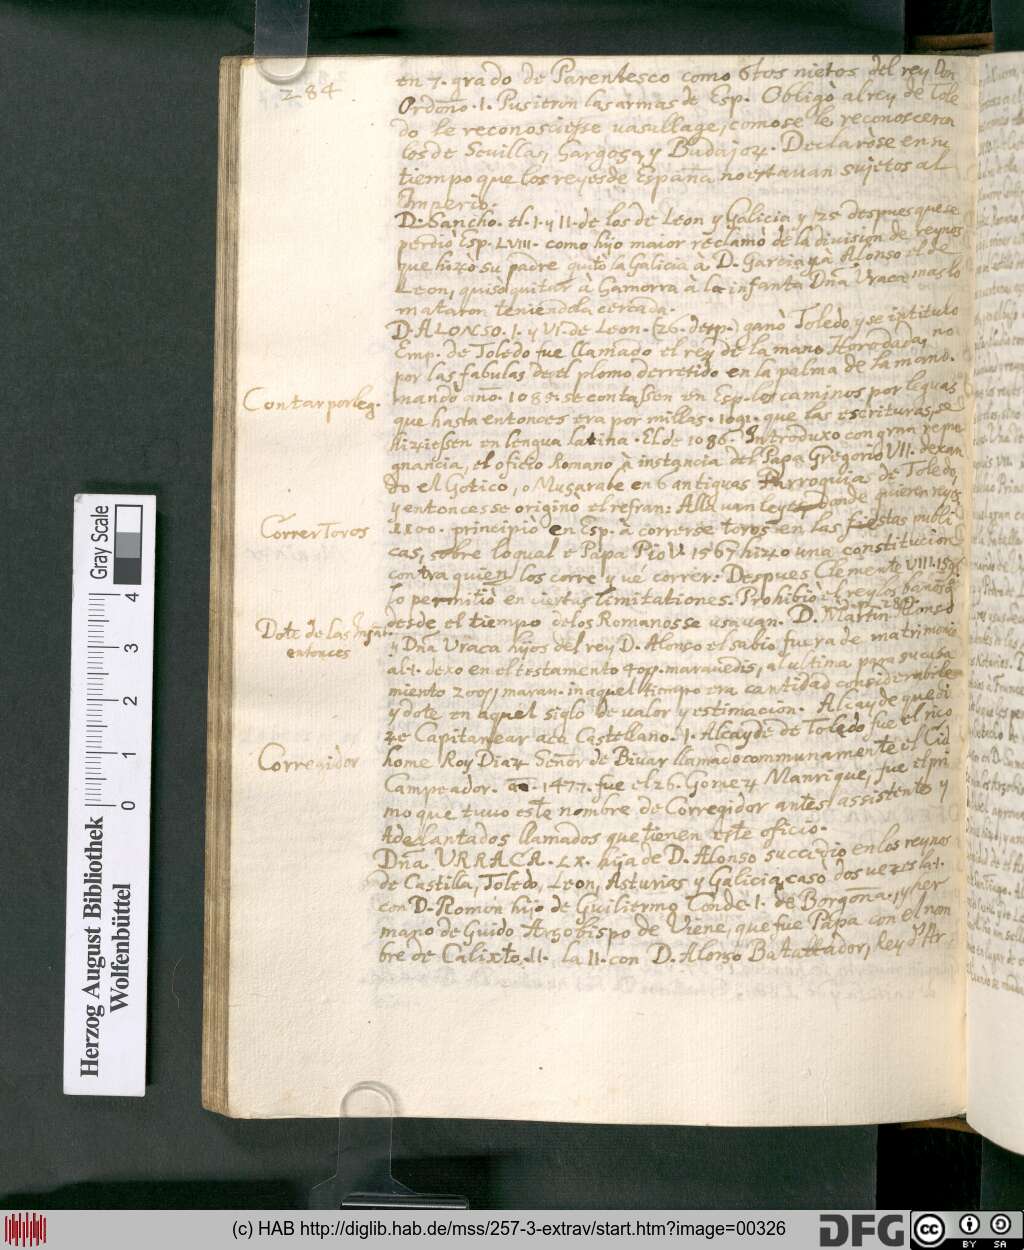 284
en 7. grado de Parentesco como 6tos nietos del rey Don
Ordoño .I. Pusieron las armas de Esp. Obligò al rey de Tole
do le reconosciesse vasallage, como se le reconosceron
los de Sevilla, y Badajoz. Declaròse en su
tiempo que los reyes de España no estavan sujetos al
Imperio.
D. Sancho. el .I. y II. de los de Leon y Galicia y 25 despues que se
perdiò Esp. LVIII. como hijo maior reclamò de la division de reynos
que hizo su padre quitò la Galicia à D. Garcia, y à Alonso el de
Leon, quiso quitar à Çamorra à la infanta Dña Vraca, mas lo
mataron teniendola cercada.
D. ALONSO .I. y VI. de Leon. (26. desp.) ganò Toledo, y se intitulo
Emp. de Toledo fue llamado el rey de la mano Horodada, no
por las fabulas de el plomo derretido en la palma de la mano.
Contar por leg.
mandò año. 1088. se contassen en Esp. los caminos por leguas
que hasta entonces era por millas. 1091. que las escrituras se
hiziessen en lengua latina. El de 1086. Introduxo con gran repu
gnancia, el oficio Romano à instancia del Papa Gregorio VII. dexan
do el Gotico, o Musarabe en 6 antiguas Parroquias de Toledo,
y entonces se originò el refran: Alla van leyes donde quieren reyes
Correr Toros
1100. principiò en Esp. à correrse toros en las fiestas publi
cas, sobre lo qual el Papa Pio V. 1567 hizo una constitucion
contra quien los corre y vé correr: Despues Clemente VIII.
lo permitiò en ciertas limitationes. Prohibio el rey los baños q̃
desde el tiempo de los Romanos se usavan. D. Martin
Dote de las Infant.
entonces
y Dña Vraca hijos del rey D. Alonso el sabio fuera de matrimonio
al .I. dexo en el testamento maravedis, a la ultima para su casa
miento marav. in aquel tiempo era cantidad considerabile
y dote en aquel siglo de valor y estimacion. Alcayde que di
ze Capitanear aca Castellano. I. Alcayde de Toledo fue el rico
Corregidor
home Roy Diaz Señor de Bivar llamado communamente el Cid
Campeador. 1477. fue el 26. Gomez Manrique, fue el pri
mo que tuvo este nombre de Corregidor antes assistente y
Adelantados llamados que tienen este oficio.
Dña VRRACA. LX. hija de D. Alonso succedio en los reynos
de Castilla, Toledo, Leon, Asturias y Galicia, caso dos vezes la .I.
con D. Romon hijo de Guiliermo Conde .I. de Borgoña. y her
mano de Guido Arzobispo de Viene, que fue Papa con el nom
bre de Calixto. II. la II. con D. Alonso Batattador, Rey d'Ar
Gray Scale
0 1 2 3 4
Herzog August Bibliothek
Wolfenbüttel
(c) HAB http://diglib.hab.de/mss/257-3-extrav/start.htm?image=00326
DFG
CC
BY SA